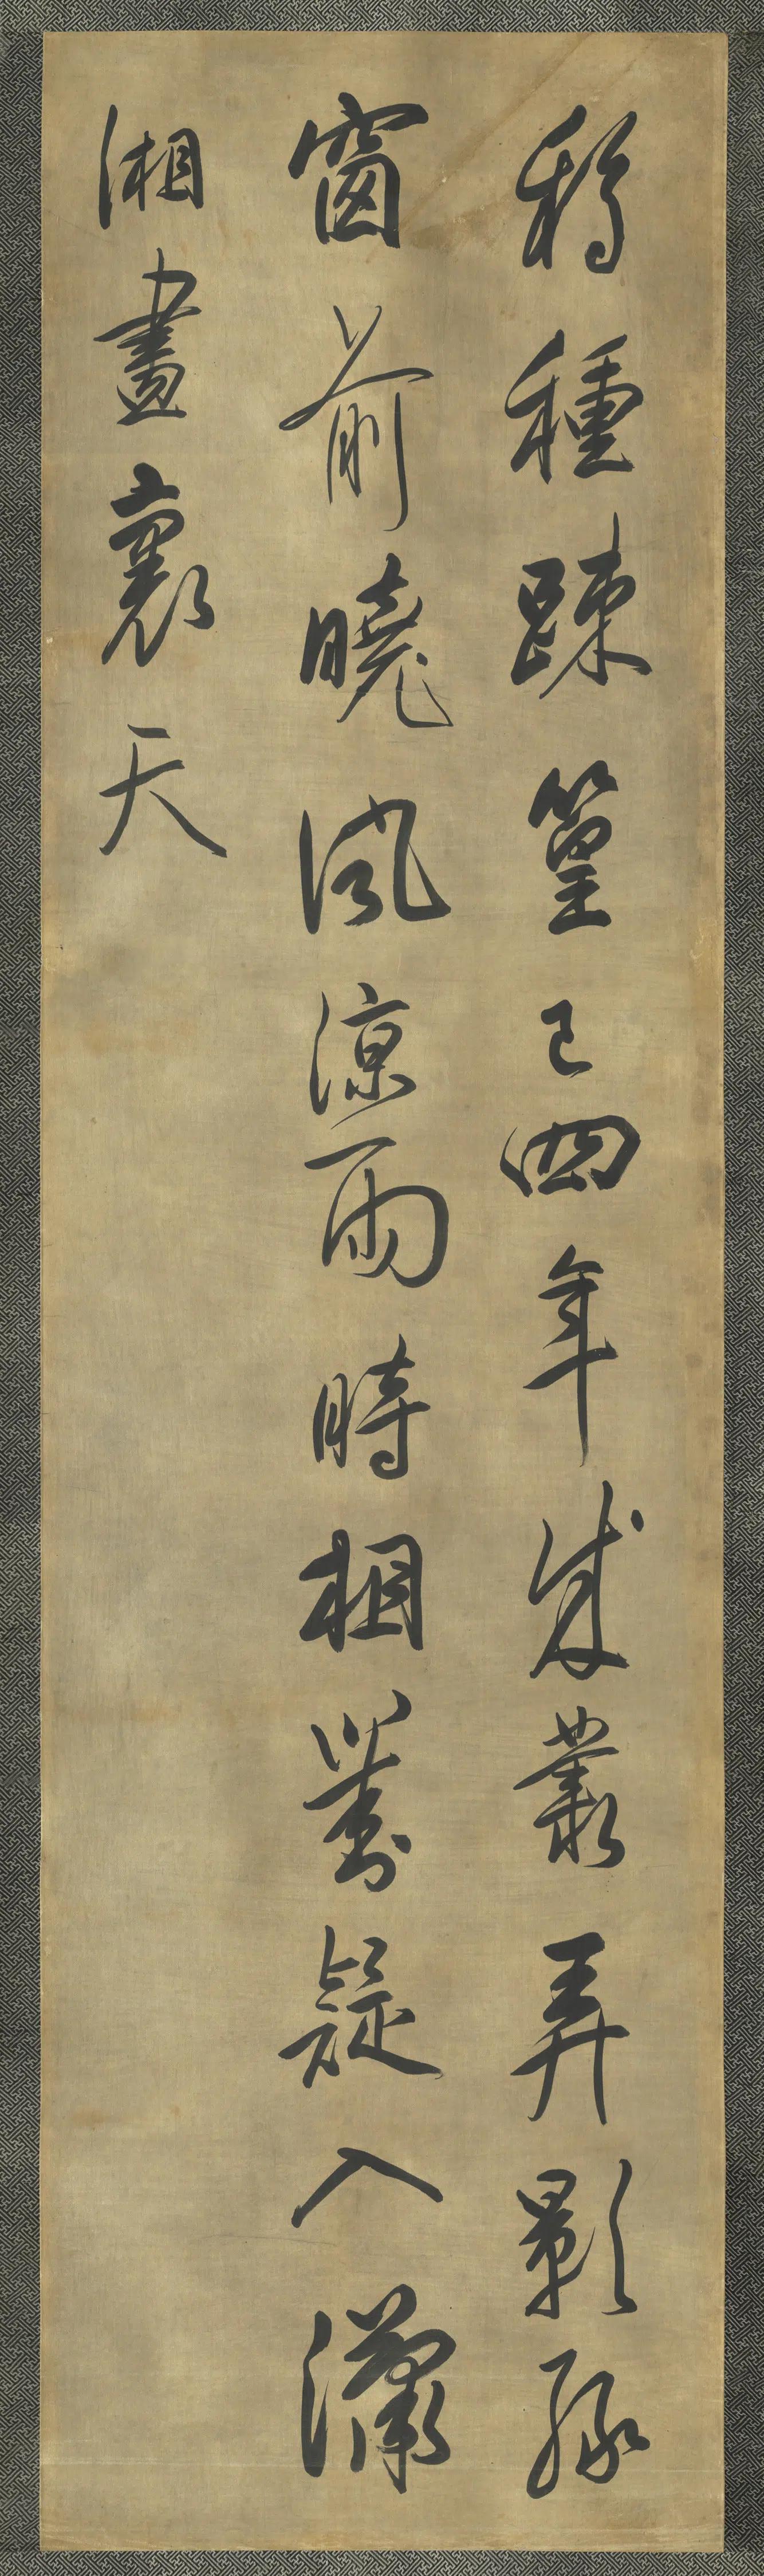 移種疎篁已四年成叢弄影綠
窗前曉風涼雨時相對疑入瀟
湘畫裏天